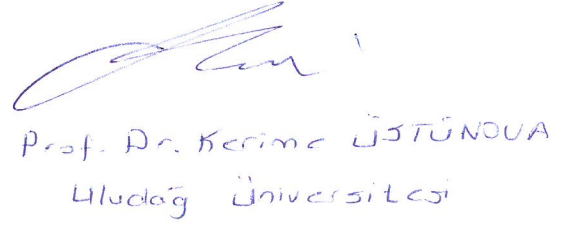 Prof. Dr. Kerime ÜSTÜNOVA
Uludağ Üniversitesi